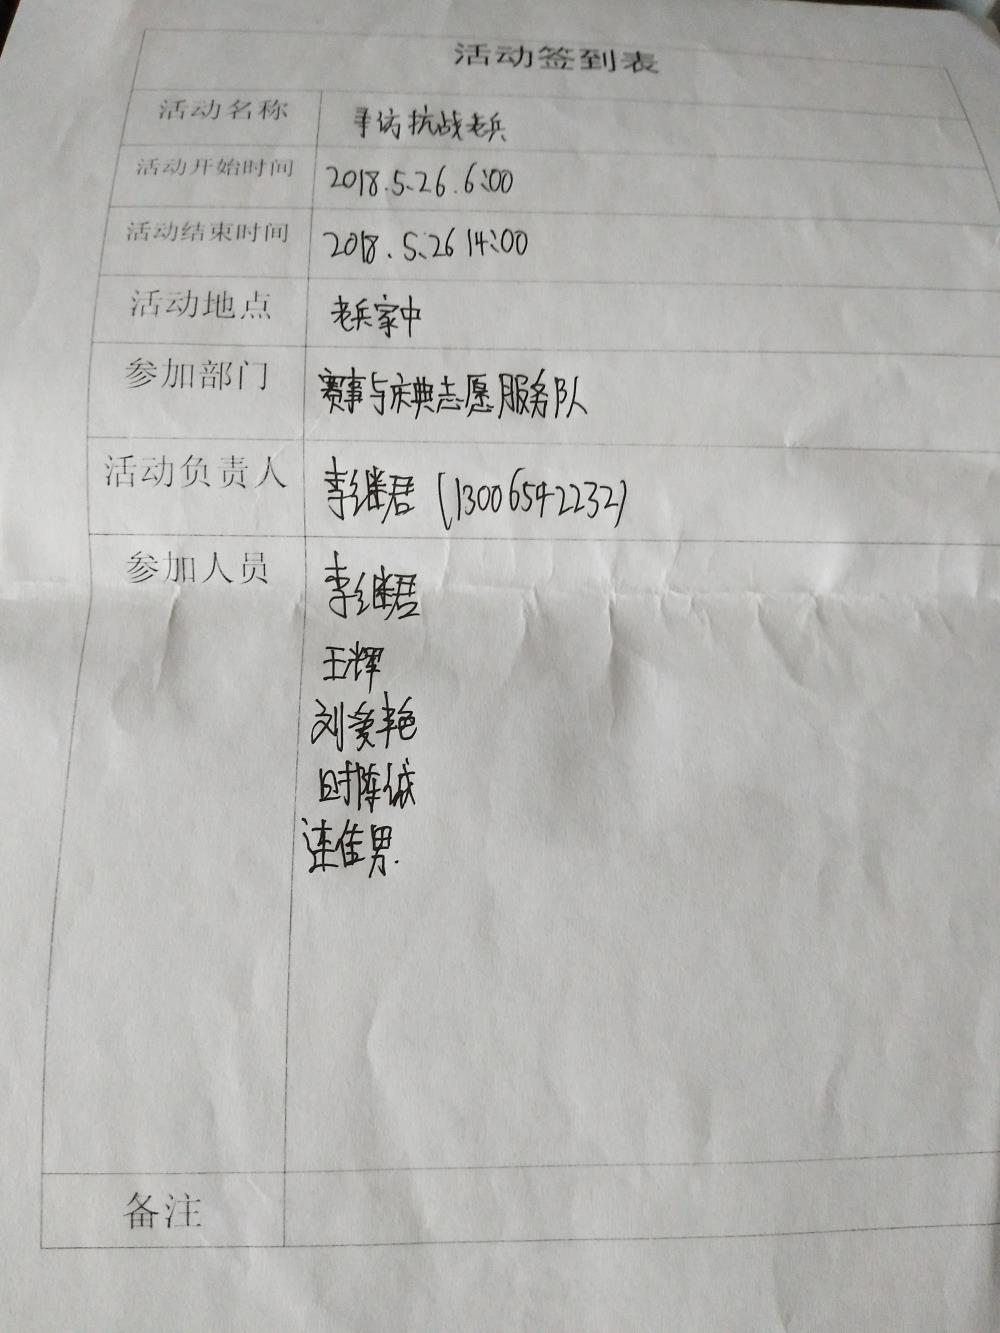 活动签到表
活动名称 寻访抗战老兵
活动开始时间 2018.5.26.6:00
活动结束时间 2018.5.26 14:00
活动地点 老兵家中
参加部门 赛事与庆典志愿服务队
活动负责人 李继君 (13006542232)
参加人员 李继君
王辉
刘爱艳
时陈诚
连佳男.
备注